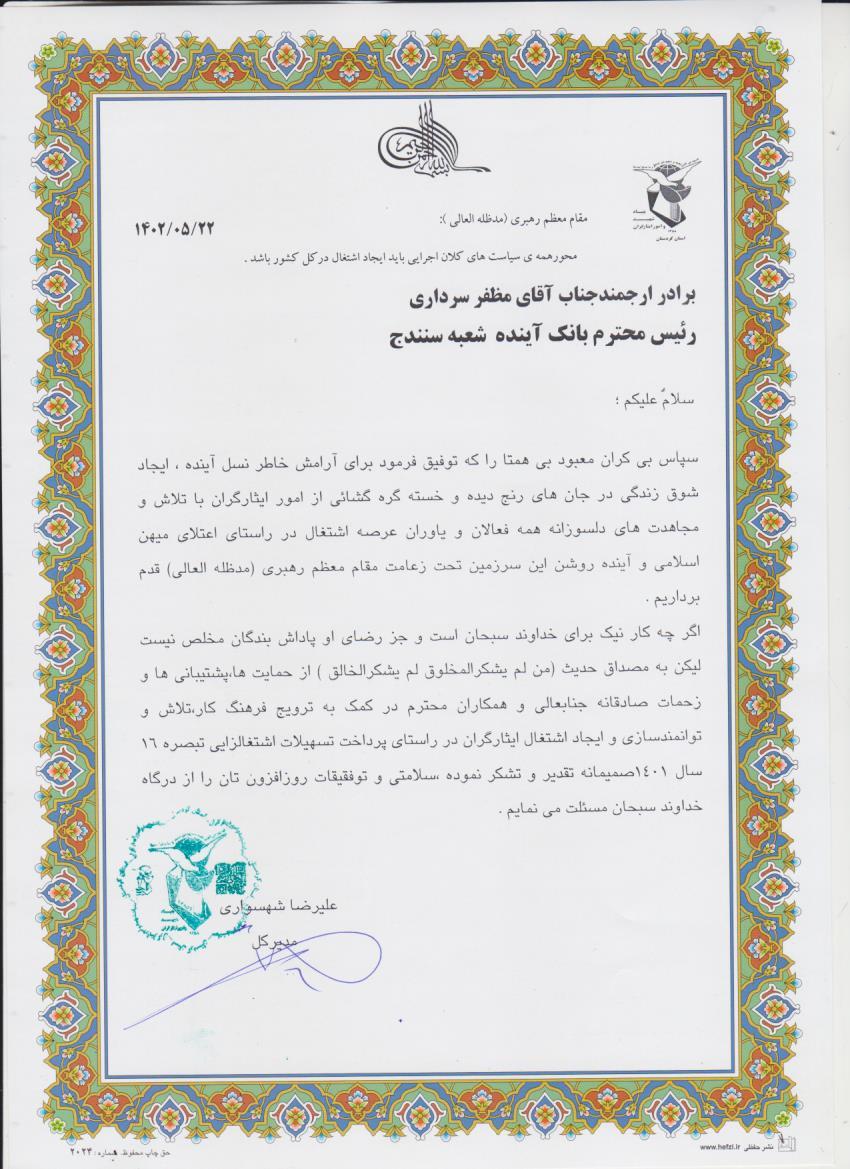 بسم الله الرحمن الرحیم
بنیاد
شهید
و امور ایثارگران
استان کردستان
مقام معظم رهبری (مدظله العالی ):
۱۴۰۲/۰۵/۲۲
محورهمه ی سیاست های کلان اجرایی باید ایجاد اشتغال درکل کشور باشد .
برادر ارجمندجناب آقای مظفر سرداری
رئیس محترم بانک آینده شعبه سنندج
سلامٌ علیکم ؛
سپاس بی کران معبود بی همتا را که توفیق فرمود برای آرامش خاطر نسل آینده ، ایجاد
شوق زندگی در جان های رنج دیده و خسته گره گشائی از امور ایثارگران با تلاش و
مجاهدت های دلسوزانه همه فعالان و یاوران عرصه اشتغال در راستای اعتلای میهن
اسلامی و آینده روشن این سرزمین تحت زعامت مقام معظم رهبری (مدظله العالی) قدم
برداریم .
اگر چه کار نیک برای خداوند سبحان است و جز رضای او پاداش بندگان مخلص نیست
لیکن به مصداق حدیث (من لم یشکرالمخلوق لم یشکرالخالق ) از حمایت ها،پشتیبانی ها و
زحمات صادقانه جنابعالی و همکاران محترم در کمک به ترویج فرهنگ کار،تلاش و
توانمندسازی و ایجاد اشتغال ایثارگران در راستای پرداخت تسهیلات اشتغالزایی تبصره ۱۶
سال ۱۴۰۱صمیمانه تقدیر و تشکر نموده ،سلامتی و توفقیقات روزافزون تان را از درگاه
خداوند سبحان مسئلت می نمایم .
علیرضا شهسواری
مدیرکل
نشر حفظی www.hefzi.ir
حق چاپ محفوظ. شماره : ۲۰۲۳